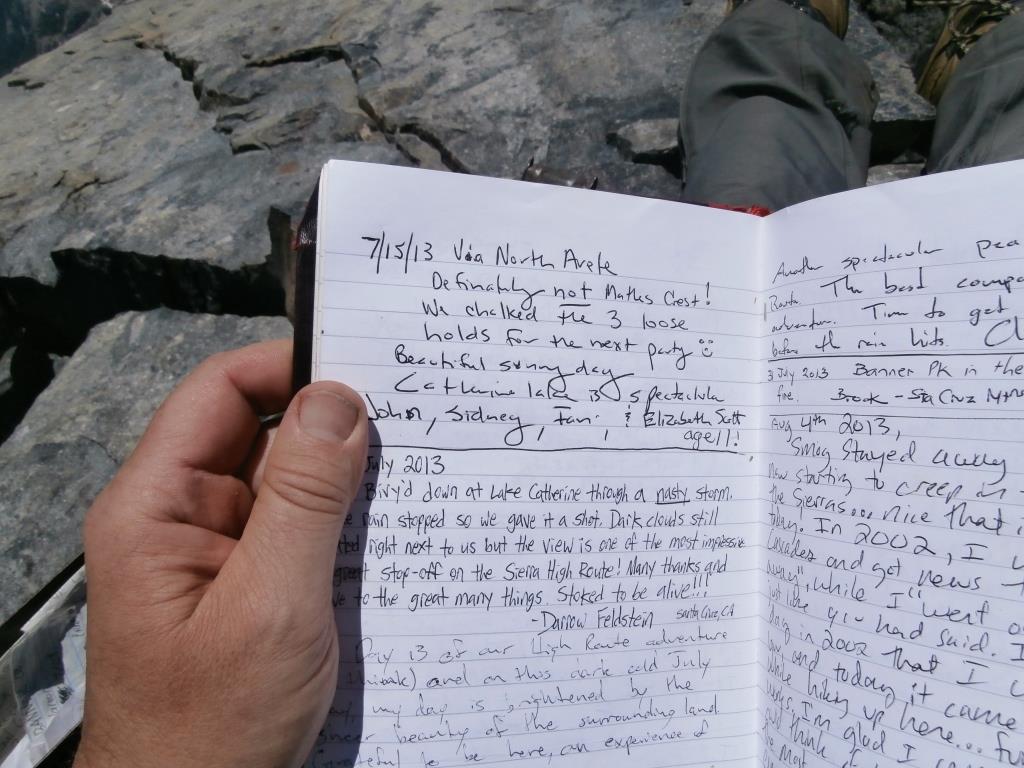 7/15/13 Via North Arete
Definately not Matthes Crest!
We chalked the 3 loose
holds for the next party
Beautiful sunny day
Catherine lake is spectacular
John, Sidney, & Elizabeth Scott
age 11!
July 2013
Bivy'd down at Lake Catherine through a nasty storm.
rain stopped so we gave it a shot. Dark clouds still
right next to us but the view is one of the most impressive
great stop-off on the Sierra High Route! Many thanks and
to the great many things. Stoked to be alive!!!
-Darrow Feldstein Santa Cruz, CA
Day 13 of our High Route adventure
and on this dark cold July
my day is brightened by the
sheer beauty of the surrounding land
grateful to be here, an experience of
Another spectacular pea
Route. The best compa
adventure. Time to get
before the rain hits.
3 July 2013 Banner Pk in the
fine. Brook - Sta Cruz Mtns
Aug 4th 2013,
Smog stayed away
now starting to creep in
the Sierras... nice that i
today. In 2002, I
Cascades and got news
away", while I went o
but like you had said. I
day in 2002 that I
and today it came
while hiking up here... fu
I'm glad I
think
most